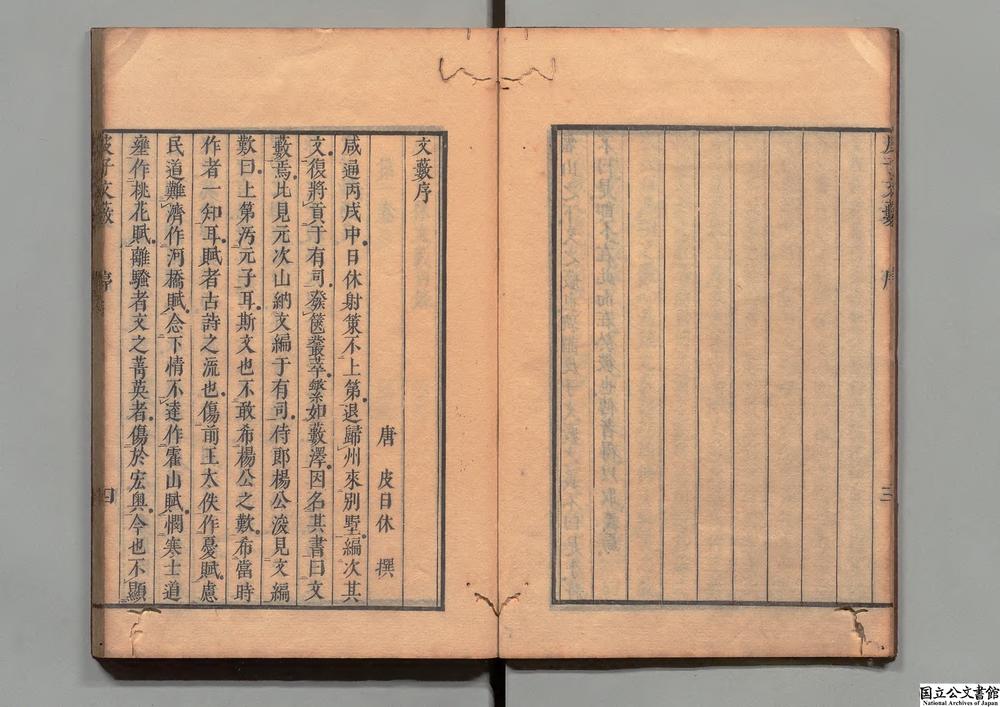 文藪序
唐　皮日休　撰
咸通丙戌中日休射策不上第退歸州來別墅編次其
文復將貢于有司發篋叢萃繁如藪澤因名其書曰文
藪焉比見元次山納文編于有司侍郎楊公浚見文編
歎曰上第汚元子耳斯文也不敢希楊公之歎希當時
作者一知耳賦者古詩之流也傷前王太佚作憂賦慮
民道難濟作河橋賦念下情不達作霍山賦憫寒士道
壅作桃花賦離騷者文之菁英者傷於宏奧今也不顯
皮子文藪　序　四
三
国立公文書館
National Archives of Japan